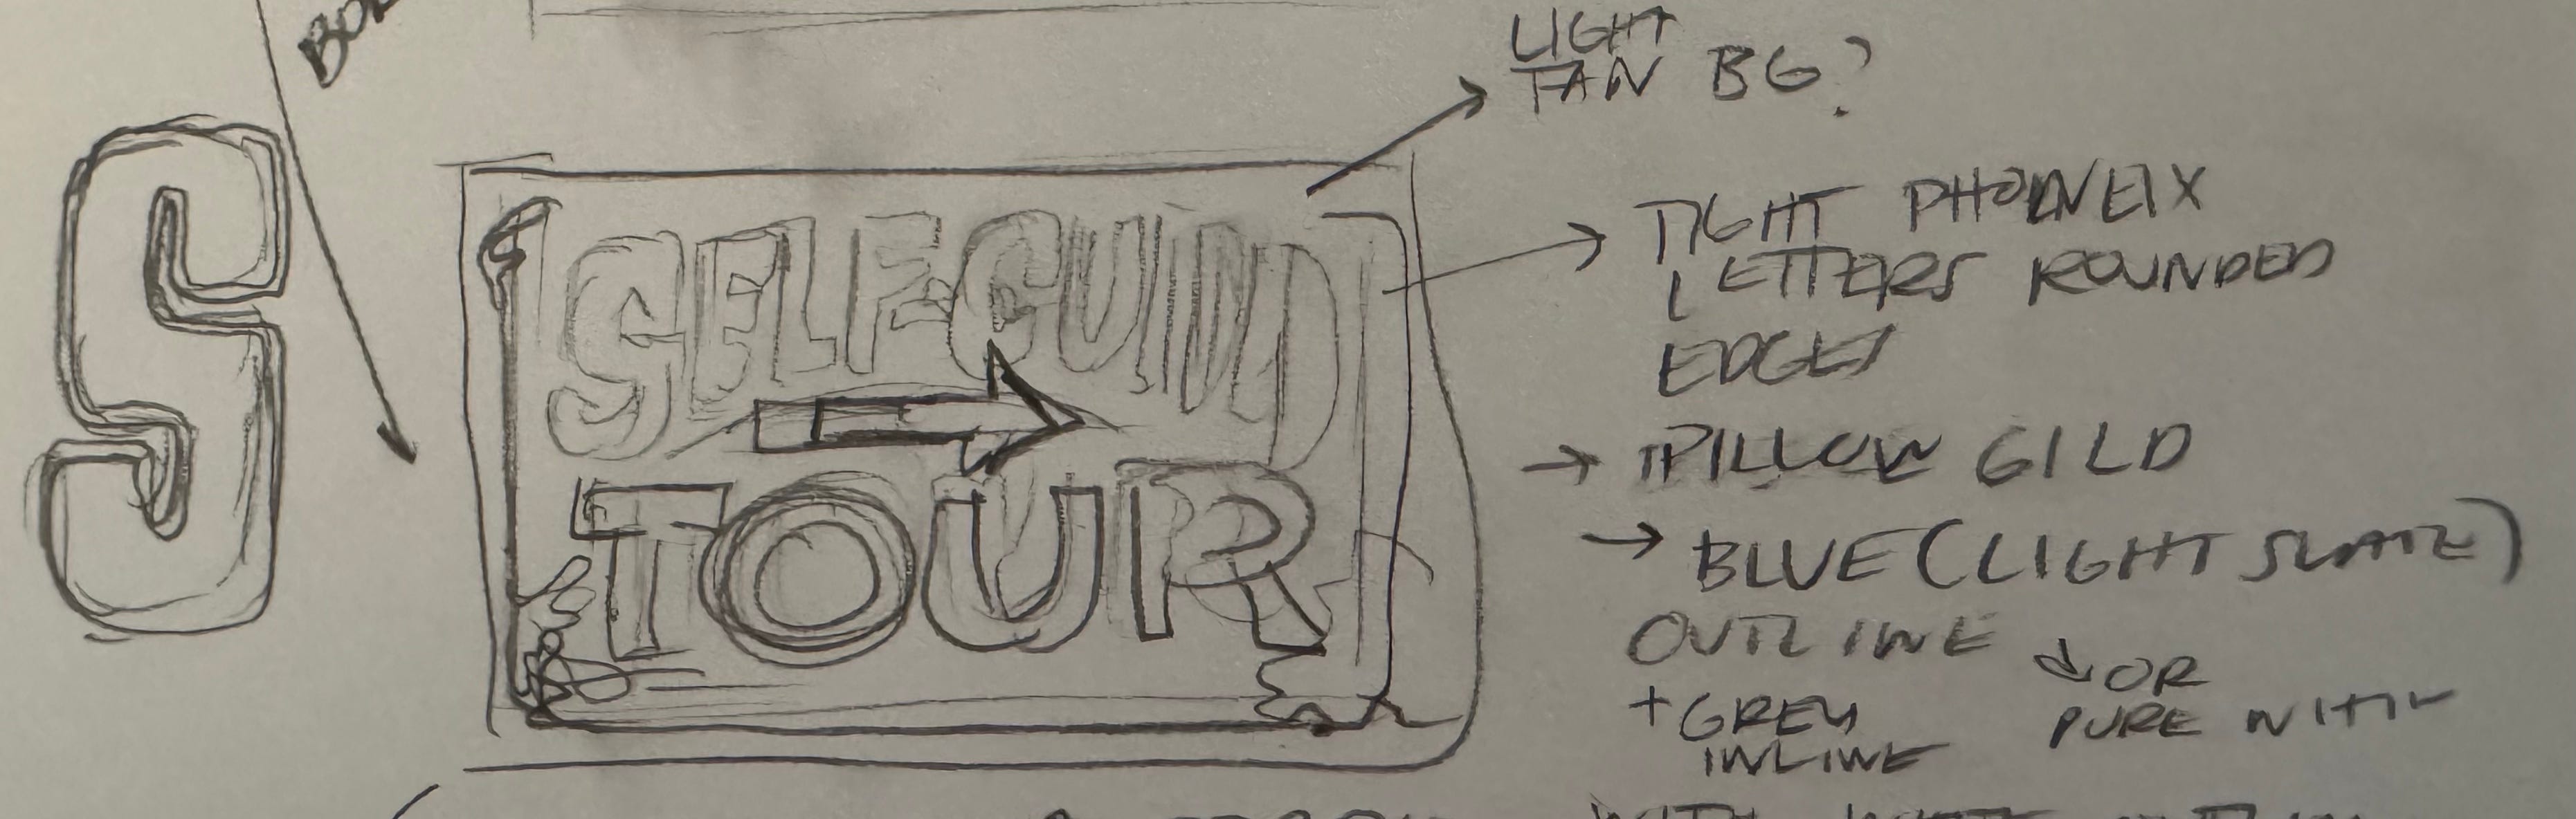 S
SELF-GUIDD
TOUR
LIGHT
TAN BG?
TIGHT PHOENEIX
LETTERS ROUNDED
EDGES
→ PILLOW GILD
→ BLUE (LIGHT SLATE)
OUTLINE
OR
+ GREY
PURE WHITE
INLINE
WITH